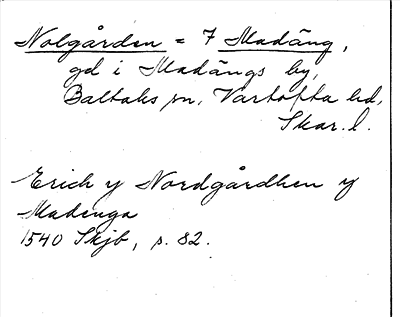 Nolgården = 7 Madäng,
gd i Madängs by,
Baltaks sn, Vartofta hd,
Skar. l.
Erich y Nordgårdhen y
Madenga
1540 Skjb, s. 82.